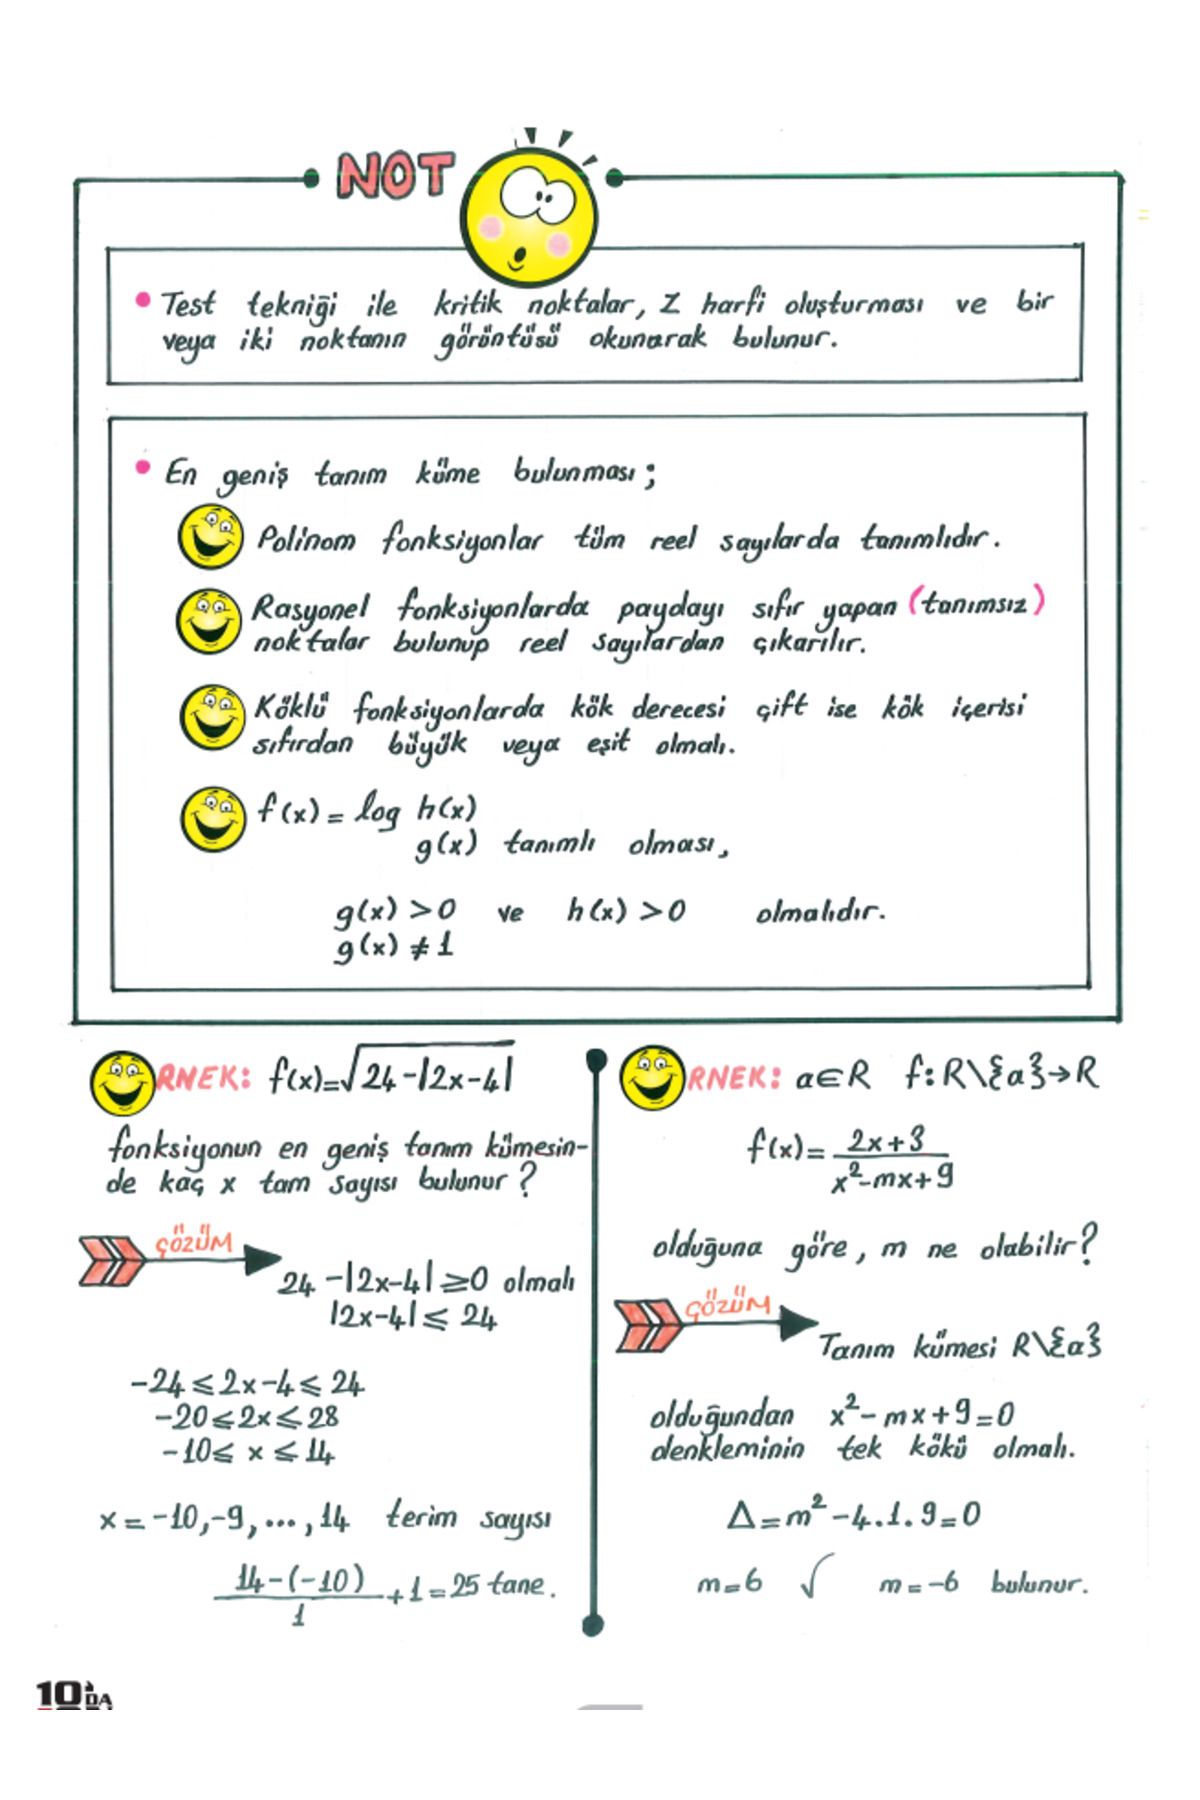 NOT
• Test tekniği ile kritik noktalar, Z harfi oluşturması ve bir
veya iki noktanın görüntüsü okunarak bulunur.
• En geniş tanım küme bulunması ;
Polinom fonksiyonlar tüm reel sayılarda tanımlıdır.
Rasyonel fonksiyonlarda paydayı sıfır yapan (tanımsız)
noktalar bulunup reel sayılardan çıkarılır.
Köklü fonksiyonlarda kök derecesi çift ise kök içerisi
sıfırdan büyük veya eşit olmalı.
f(x) = log h(x)
g(x) tanımlı olması,
g(x) > 0 ve h(x) > 0 olmalıdır.
g(x) ≠ 1
RNEK: f(x)=√24-|2x-4|
fonksiyonun en geniş tanım kümesin-
de kaç x tam sayısı bulunur?
ÇÖZÜM
24 -|2x-4| ≥0 olmalı
|2x-4| ≤ 24
-24 ≤ 2x-4 ≤ 24
-20 ≤ 2x ≤ 28
-10 ≤ x ≤ 14
x = -10,-9, ..., 14 terim sayısı
14-(-10)/1 +1 = 25 tane.
RNEK: a∈R f: R\{a}→R
f(x)= 2x+3
x²-mx+9
olduğuna göre, m ne olabilir?
ÇÖZÜM
Tanım kümesi R\{a}
olduğundan x²- mx+9=0
denkleminin tek kökü olmalı.
Δ=m²-4.1.9=0
m=6 √ m=-6 bulunur.
10'DA